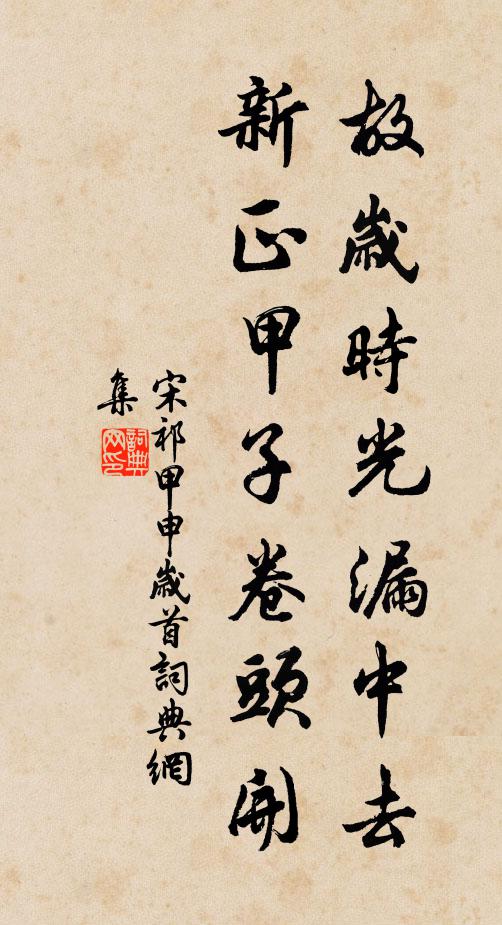 故歲時光漏中去
新正甲子卷頭開
宋祁甲申歲首詞典網
集
詞典
网印